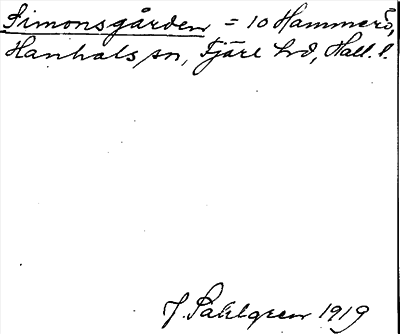 Simonsgården = 10 Hammerö,
Hanhals sn, Fjäre hd, Hall. l.
J. Sahlgren 1919